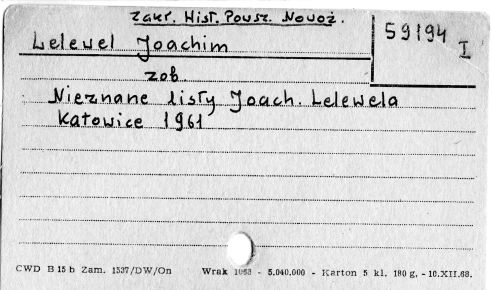 Zakł. Hist. Powsz. Nowoż.
Lelewel Joachim
59194 I
zob.
Nieznane listy Joach. Lelewela
Katowice 1961
CWD B 15 b Zam. 1537/DW/On Wrak - 5.040.000 - Karton 5 kl. 180 g. - 10.XII.68.